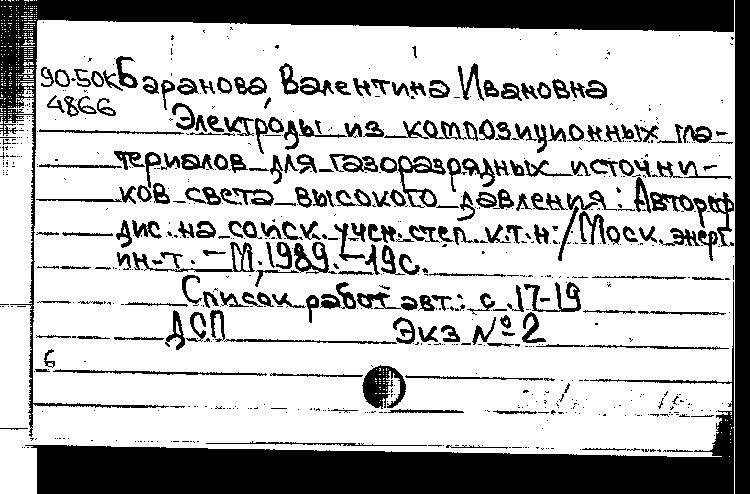 90-50К Баранова Валентина Ивановна
4866
Электроды из композиционных ма-
териалов для газоразрядных источни-
ков света высокого давления: Автореф
дис. на соиск. учен. степ. к.т.н./Моск. энерг.
ин-т. - М., 1989. - 19с.
Список работ авт.: с. 17-19
ДСП Экз № 2
6